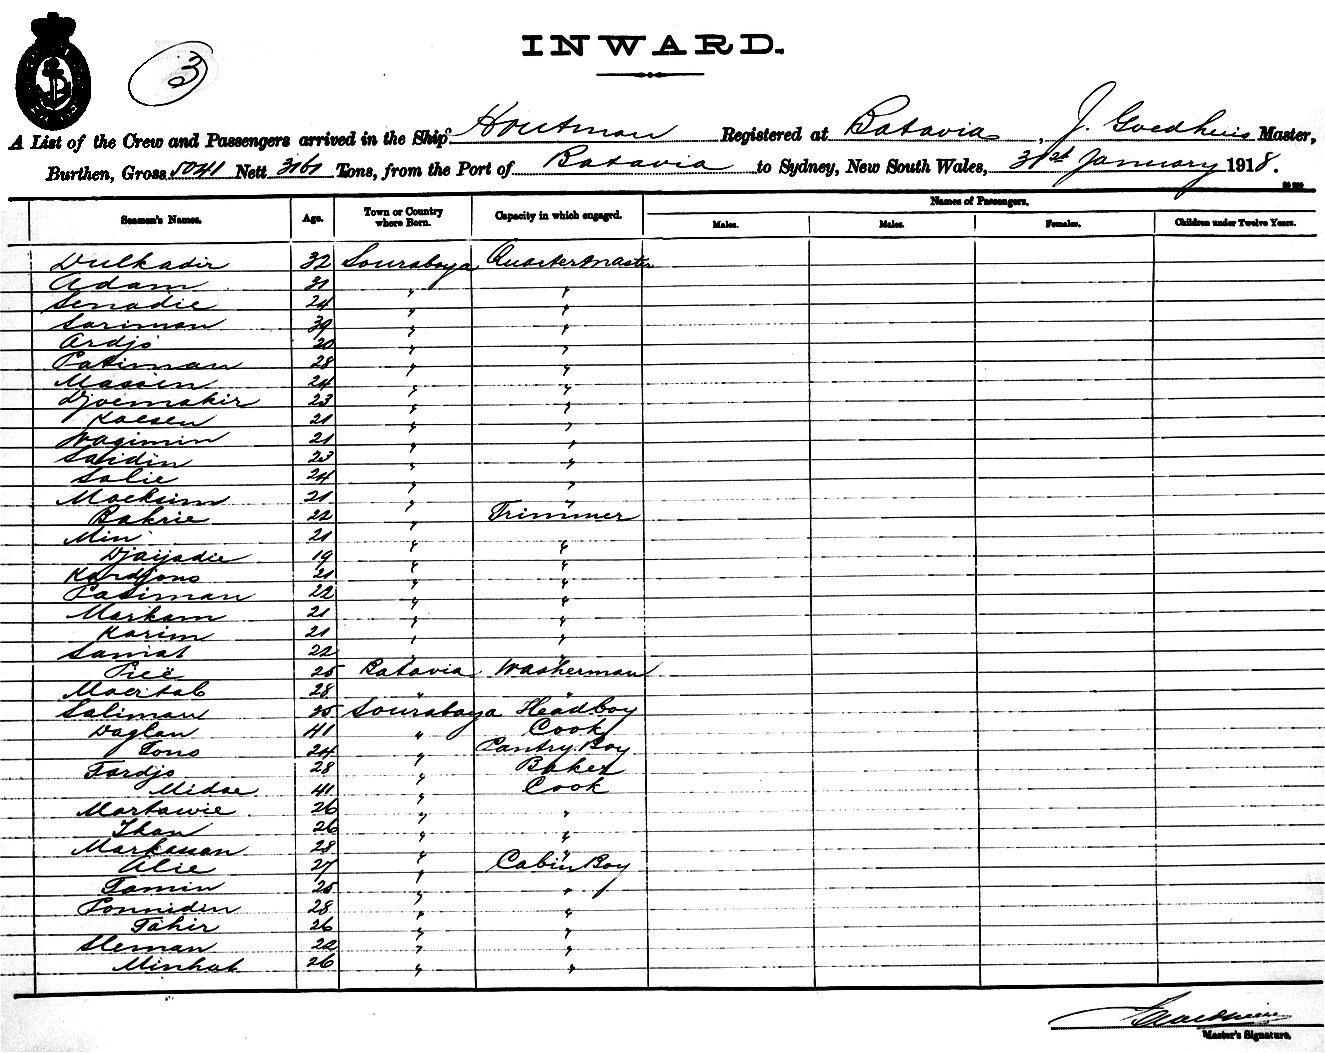 3
INWARD.
A List of the Crew and Passengers arrived in the Ship Houtman Registered at Batavia, J. Goedhuis Master,
Burthen, Gross 5041 Nett 3161 Tons, from the Port of Batavia to Sydney, New South Wales, 31st January 1918.
Names of Passengers.
Seamen's Names. Age. Town or Country where Born. Capacity in which engaged. Males. Males. Females. Children under Twelve Years.
Dulkadir 32 Sourabaya Quartermaster
Adam 31 " "
Senadie 24 " "
Sariman 39 " "
Ardjo 20 " "
Patiman 28 " "
Massin 24 " "
Djoemakir 23 " "
Kaesen 21 " "
Wagimin 21 " "
Saidin 23 " "
Salie 24 " "
Moeksim 21 " "
Bakrie 22 " Trimmer
Min 21 " "
Djaijadie 19 " "
Kardjono 21 " "
Patiman 22 " "
Markam 21 " "
Karim 21 " "
Samat 22 " "
Piee 25 Batavia Washerman
Moertab 28 " "
Saliman 35 Sourabaya Headboy
Daglan 41 " Cook
Tono 24 " Pantry Boy
Tardjo 28 " Baker
Midae 41 " Cook
Martawie 26 " "
Ihan 26 " "
Markassan 28 " "
Alie 27 " Cabin Boy
Tamin 25 " "
Ponnidin 28 " "
Tahir 26 " "
Sleman 22 " "
Minhat 26 " "
Master's Signature.